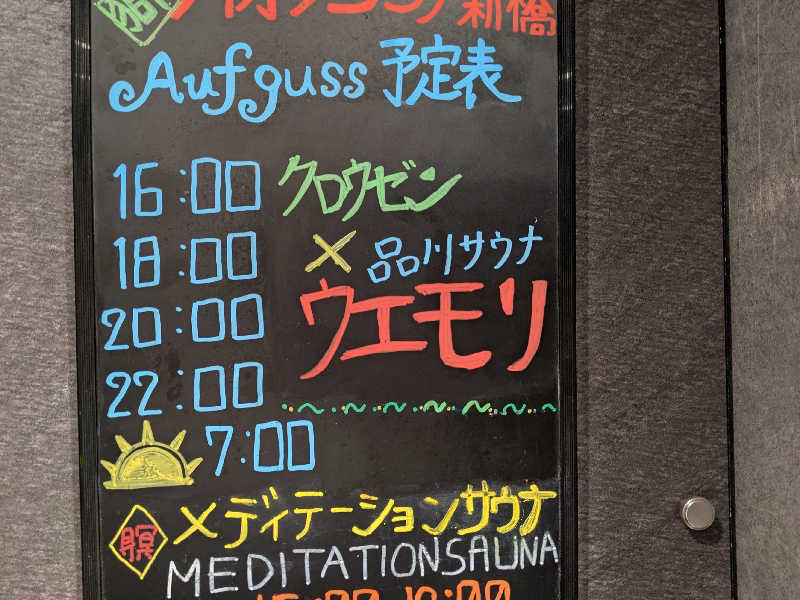 新橋
Aufguss 予定表
16:00 クロウゼン
18:00 × 品川サウナ
20:00 ウエモリ
22:00
7:00
瞑 メディテーションサウナ
MEDITATIONSAUNA